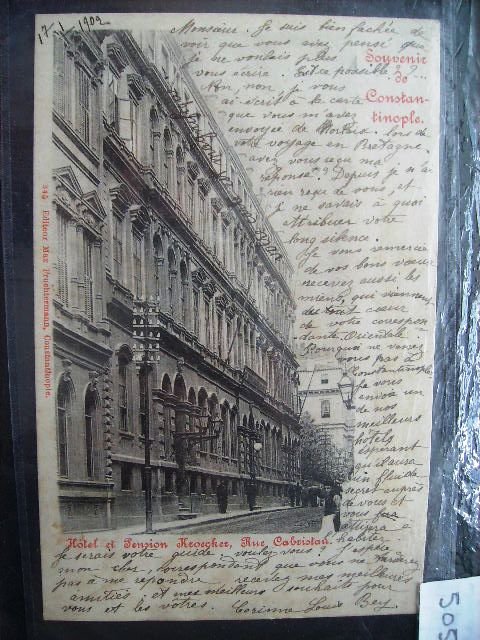 17/1 1902
Monsieur. Je suis bien fachée de
voir que vous avez pensé que
je ne voulais plus
vous écrire. Est-ce possible ? ? ...
Non, non je vous
ai écrit à la carte
que vous m'avez
envoyée de lors de
votre voyage en Bretagne.
avez vous reçu ma
réponse ? Depuis je n'ai
rien reçu de vous, et
je ne savais à quoi
Attribuer votre
long silence.
Je vous remercie
de vos bons vœux
recevez aussi les
miens, qui viennent
de tout cœur
de votre correspon
dante Orientale.
Pourquoi ne venez
vous pas à
Constantinople
Je vous
envoie un
de nos
meilleurs
hotels
espérant
qu'il aura
un fluide
secret auprès
de vous et
vous
attirera à
habiter.
Souvenir
de
Constan-
tinople.
345 Editeur Max Fruchtermann, Constantinople.
Hôtel et Pension Kroecker, Rue Cabristan.
Je serais votre guide voulez vous ? J'espère
mon cher correspondant que vous ne tarderez
pas à me répondre recevez mes meilleures
amitiés et mes meilleurs souhaits pour
vous et les vôtres. Corinne Louis Bey
505